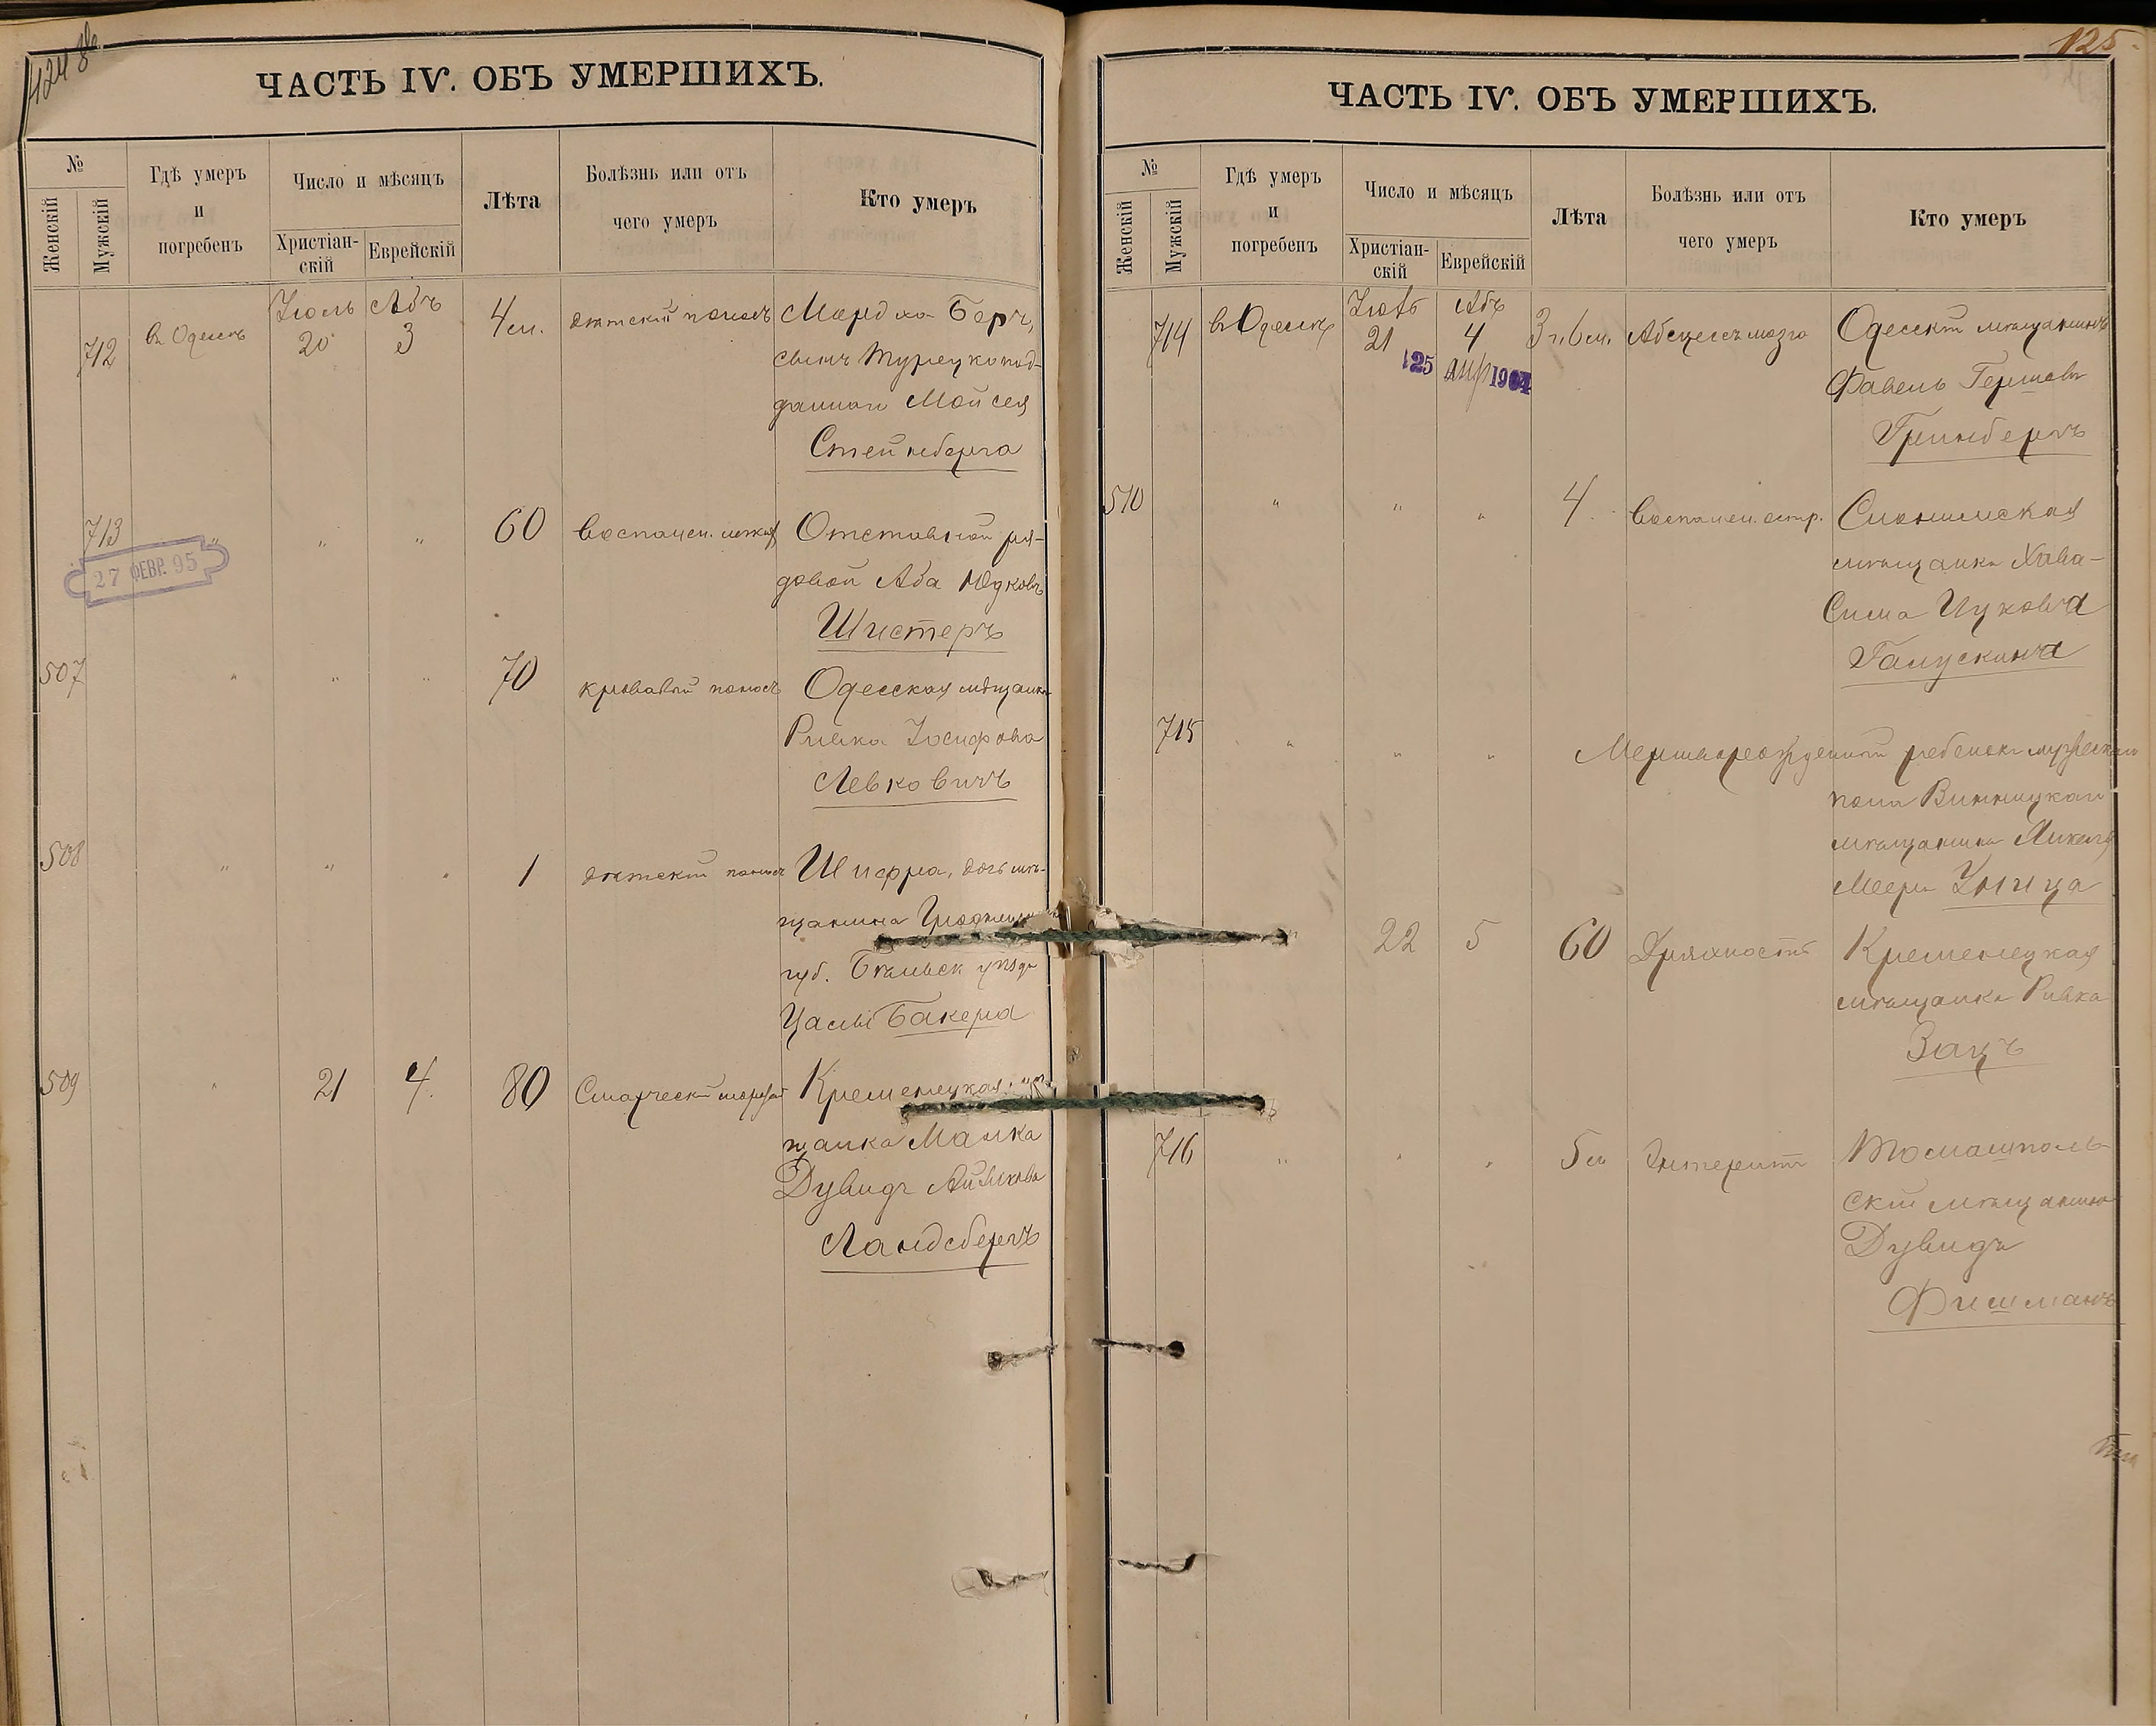 124 об
ЧАСТЬ IV. ОБЪ УМЕРШИХЪ.
№
Женскій
Мужскій
Гдѣ умеръ
и
погребенъ
Число и мѣсяцъ
Христіан-
скій
Еврейскій
Лѣта
Болѣзнь или отъ
чего умеръ
Кто умеръ
712
въ Одессѣ
Іюль Абъ
20 3
4 м.
дѣтскій поносъ
Мордхо Беръ,
сынъ турецкопод-
даннаго Мойсея
Стейнберга
713
" " "
60
воспален. легких
Отставной ря-
довой Аба Юдковъ
Шистеръ
27 ФЕВР. 95
507
" " "
70
кровавый поносъ
Одесская мѣщанка
Ривка Іосифова
Левковичъ
508
" " "
1
дѣтскій поносъ
Шифра, дочь мѣ-
щанина
губ. Бѣльск уѣзда
Бакера
509
" 21 4.
80
Старческій
Кременецкая мѣ-
щанка Малка
Дувидъ Айзикова
Ландсбергъ
125
ЧАСТЬ IV. ОБЪ УМЕРШИХЪ.
№
Женскій
Мужскій
Гдѣ умеръ
и
погребенъ
Число и мѣсяцъ
Христіан-
скій
Еврейскій
Лѣта
Болѣзнь или отъ
чего умеръ
Кто умеръ
714
въ Одессѣ
Іюль Абъ
21 4
3 г. 6 м.
Абсцессъ мозга
Одесскій мѣщанинъ
Фавель Гершовъ
Гринбергъ
25 АПР 1904
510
" " "
4
Воспален.
Слонимская
мѣщанка Хава-
Сима Ицкова
Галускина
715
" " "
Мертворожденный ребенокъ мужескаго
пола Винницкаго
мѣщанина
Меера Улица
22 5
60
Дряхлость
Кременецкая
мѣщанка Ривка
Зацъ
716
" " "
5 м
Энтеритъ
Томашполь-
скій мѣщанинъ
Дувидъ
Фишманъ